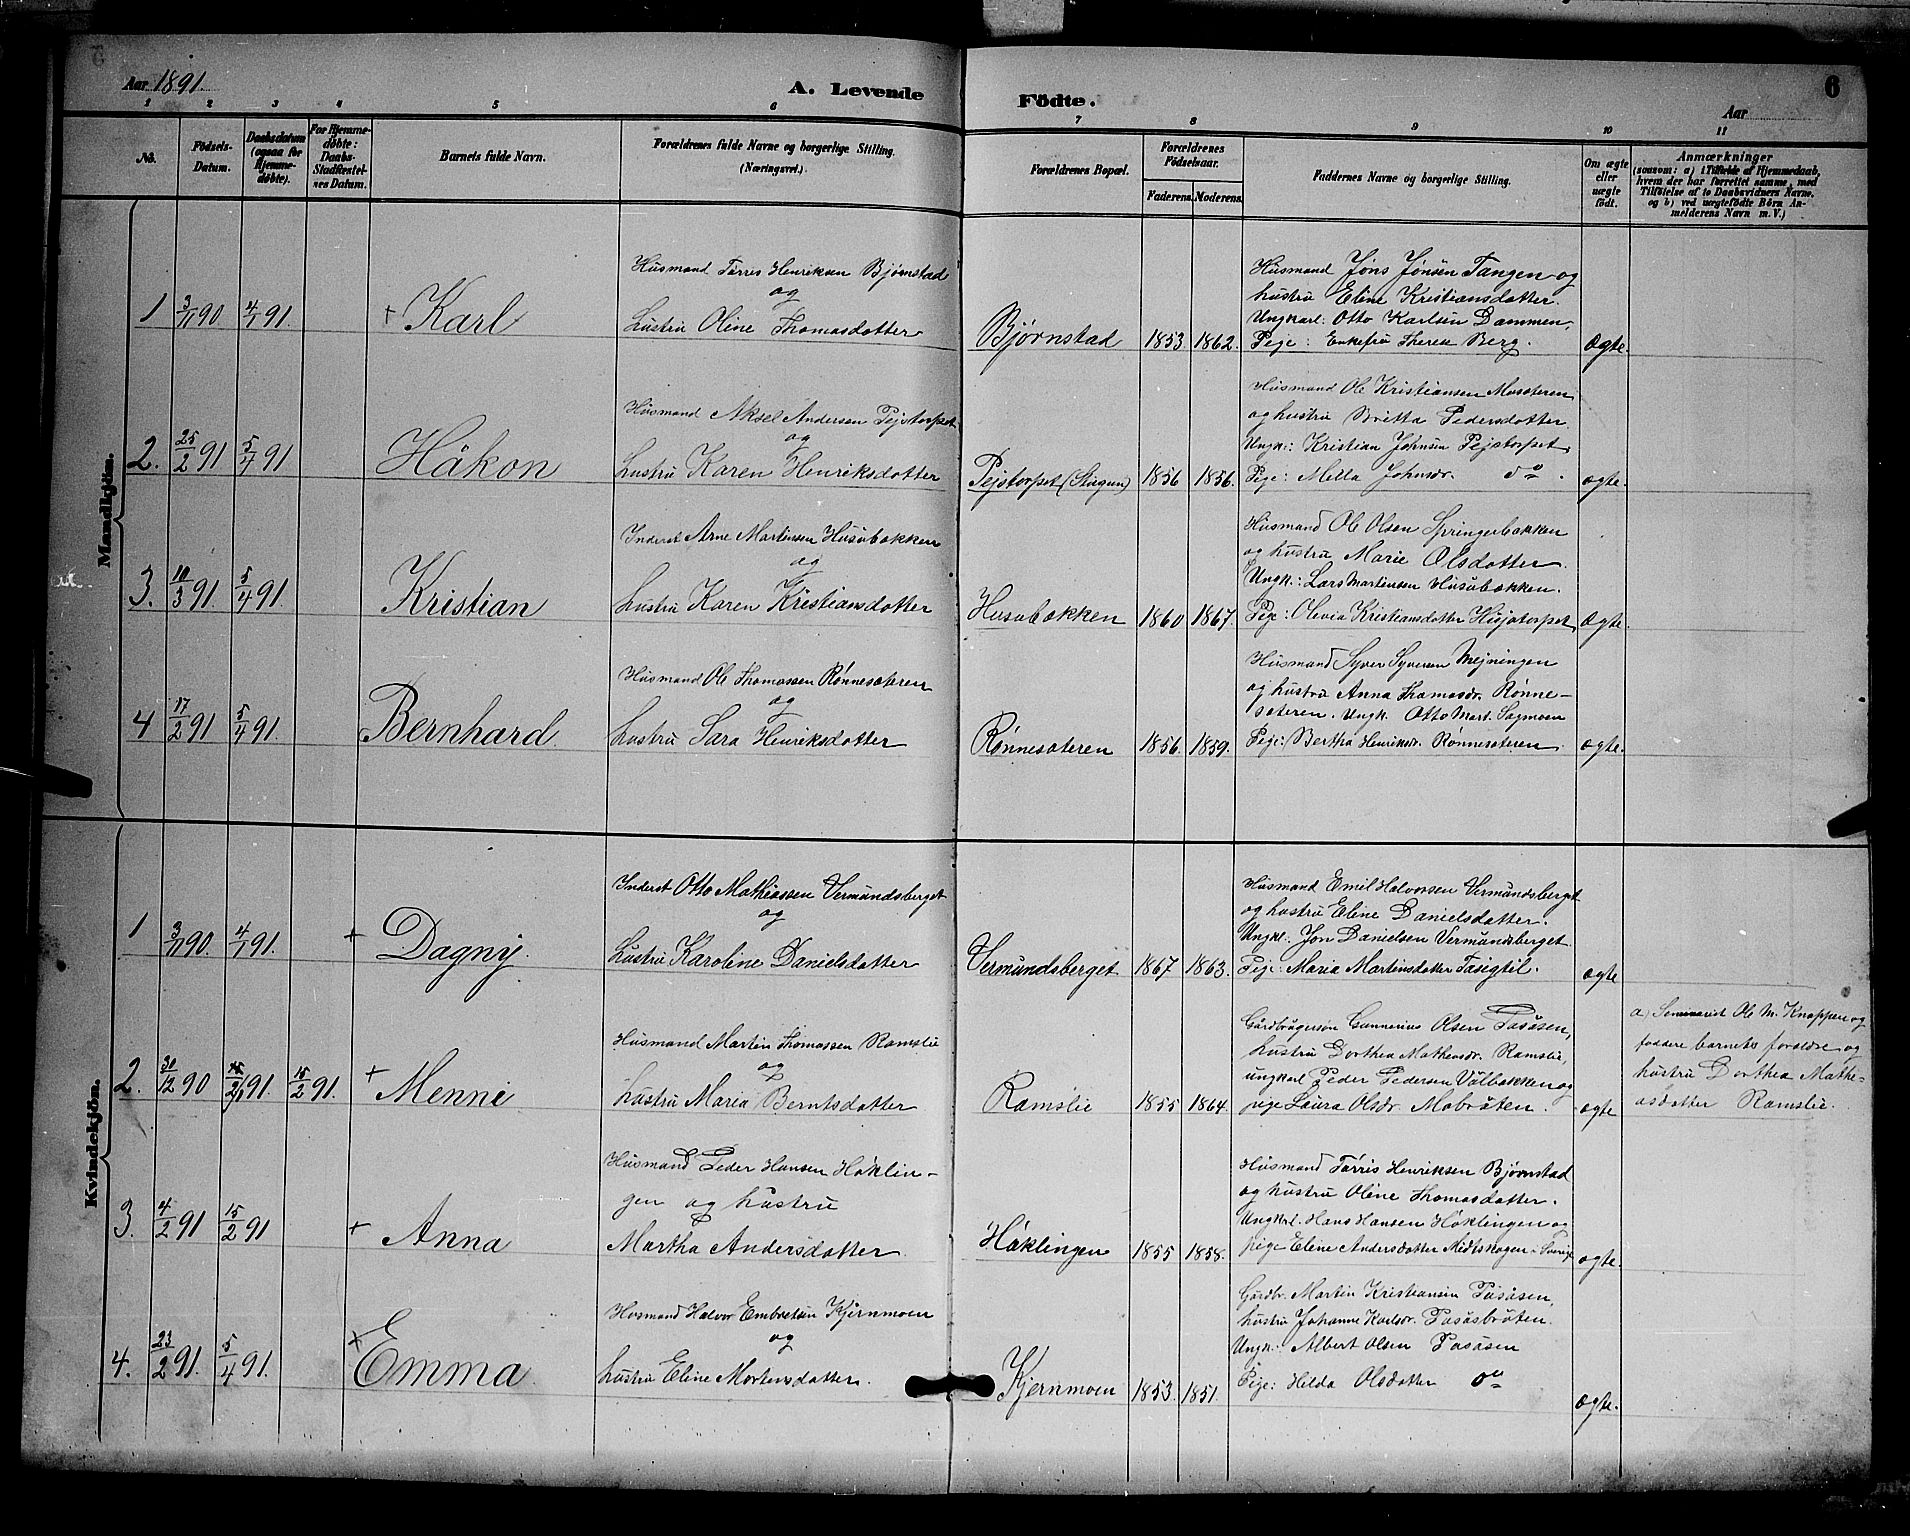 Aar 1891. A. Levende Födte. Aar 6
1 2 3 4 5 6 7 8 9 10 11
No.
Födsels-Datum.
Daabsdatum (ogsaa for Hjemmedöbte).
For Hjemmedöbte: Daabs-Stadfæstelsnes Datum.
Barnets fulde Navn.
Forældrenes fulde Navne og borgerlige Stilling. (Næringsvei.)
Forældrenes Bopæl.
Forældrenes Födselsaar.
Faderens. Moderens.
Faddernes Navne og borgerlige Stilling.
Om ægte eller uægte födt.
Anmærkninger
(saasom: a) i Tilfælde af Hjemmedaab, hvem der har forrettet samme, med Tilföielse af to Daabsvidners Navne. og b) ved uægtefödte Börn Anmelderens Navn m. V.)
Mandkjön.
1 3/11 90 4/1 91. + Karl
Husmand Torris Henriksen Bjørnstad
og
hustru Oline Thomasdotter
Bjørnstad 1853 1862.
Husmand Jøns Jønsen Tangen og
hustru Eline Kristiansdotter.
Ungkarl: Otto Karlsen Dammen,
Pige: Enkefru Therese Berg.
Ægte.
2. 25/2 91 5/4 91 Håkon
Husmand Aksel Andersen Pejstorpet
og
hustru Karen Henriksdotter
Pejstorpet (Stugun) 1856 1856.
Husmand Ole Kristiansen Mosæteren
og hustru Britta Pedersdotter.
Ungk.: Kristian Johnsen Pejstorpet
Pige: Mella Johnsdr. do.
ægte.
3. 10/3 91. 5/4 91. Kristian
Inderst Arne Martinsen Husubakken
og
hustru Karen Kristiansdotter
Husubakken 1860 1867.
Husmand Ole Olsen Springerbakken
og hustru Marie Olsdotter.
Ungk.: Lars Martinsen Husubakken.
Pige: Olevia Kristiansdotter Husjatorpet
Ægte.
4 17/2 91 5/4 91. Bernhard.
Husmand Ole Thomassen Rønnesæteren
og
hustru Sara Henriksdotter
Rønnesæteren 1856. 1859.
Husmand Syver Syversen Mejningen
og hustru Anna Thomasdr. Rønne-
sæteren. Ungk. Otto Mart. Sagmoen
Pige: Bertha Henriksdr. Rønnesæteren.
ægte.
Kvindekjön.
1 3/11 90. 4/1 91. + Dagny.
Inderst Otto Mathiassen Vermundsberget
og
hustru Karoline Danielsdotter
Vermundsberget 1867 1863.
Husmand Emil Halvorsen Vermundsberget
og hustru Eline Danielsdotter.
Ungkl: Jon Danielsen Vermundsberget
Pige: Maria Martinsdotter
ægte
2. 30/12 90 15/2 91. 15/2 91. + Menni
Husmand Martin Thomassen Ramslie
og
hustru Maria Berntsdotter
Ramslie 1855 1864.
Gårdbrugersøn Gunnerius Olsen Påsåsen,
hustru Dorthea Mathensdr. Ramslie,
ungkarl Peder Pedersen Vålbakken og
pige Laura Olsdr. Mobråten.
ægte
a) Seminarist Ole M. Knappen og
faddere barnets forældre og
hustru Dorthea Mathe-
asdotter Ramslie.
3. 4/2 91 15/2 91 + Anna
Husmand Peder Hansen Høklin-
gen og hustru
Martha Andersdotter.
Høklingen 1855 1858.
Husmand Torris Henriksen Bjørnstad
og hustru Oline Thomasdotter.
Ungkrl. Hans Hansen Høklingen og
pige Eline Andersdotter Midtskogen i Sverige
ægte.
4. 23/2 91. 5/4 91. + Emma.
Husmand Halvor Embretsen Kjernmoen
og
hustru Eline Mortensdotter.
Kjernmoen 1853. 1851.
Gårdbr. Martin Kristiansen Påsåsen,
hustru Johanne Karlsdr. Påsåsbråten.
Ungk.: Albert Olsen Påsåsen
Pige: Helda Olsdotter do
ægte.